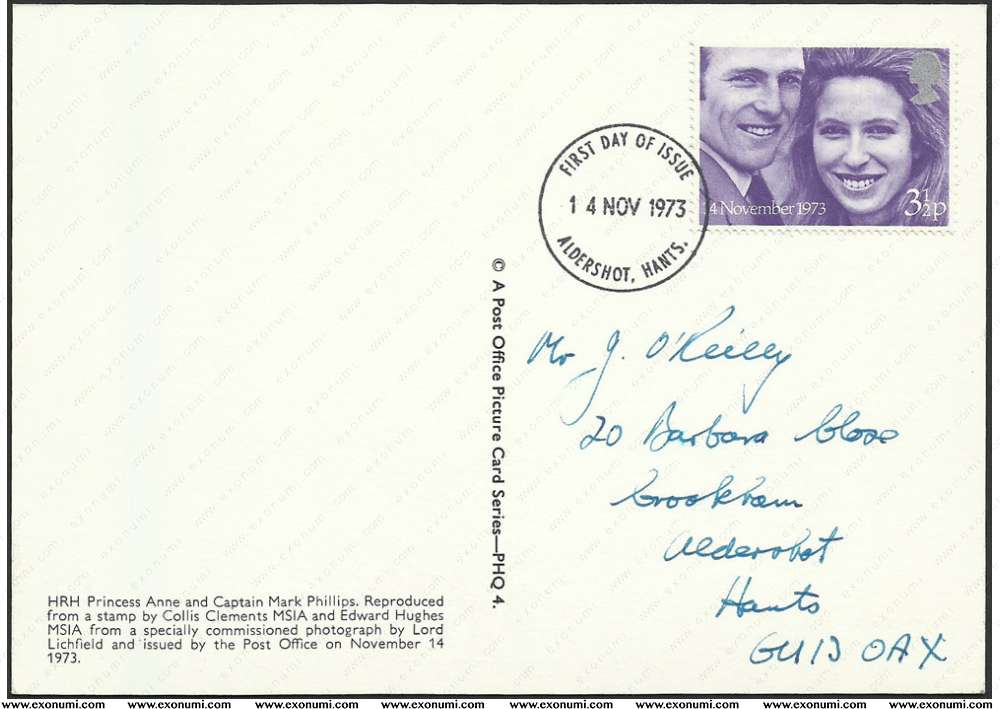 FIRST DAY OF ISSUE
14 NOV 1973
ALDERSHOT, HANTS.
4 November 1973
3½p
© A Post Office Picture Card Series—PHQ 4.
Mr J. O'Reilly
20 Barbara Close
Crookham
Aldershot
Hants
GU13 0AX
HRH Princess Anne and Captain Mark Phillips. Reproduced
from a stamp by Collis Clements MSIA and Edward Hughes
MSIA from a specially commissioned photograph by Lord
Lichfield and issued by the Post Office on November 14
1973.
www.exonumi.com www.exonumi.com www.exonumi.com www.exonumi.com www.exonumi.com www.exonumi.com www.exonumi.com www.exonumi.com